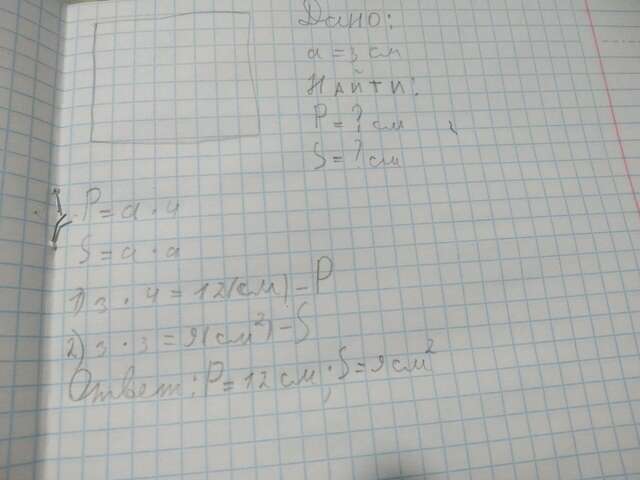 Дано:
a = 3 см
Найти:
P = ? см
S = ? см
P = a · 4
S = a · a
1) 3 · 4 = 12 (см) – P
2) 3 · 3 = 9 (см²) – S
Ответ: P = 12 см; S = 9 см²